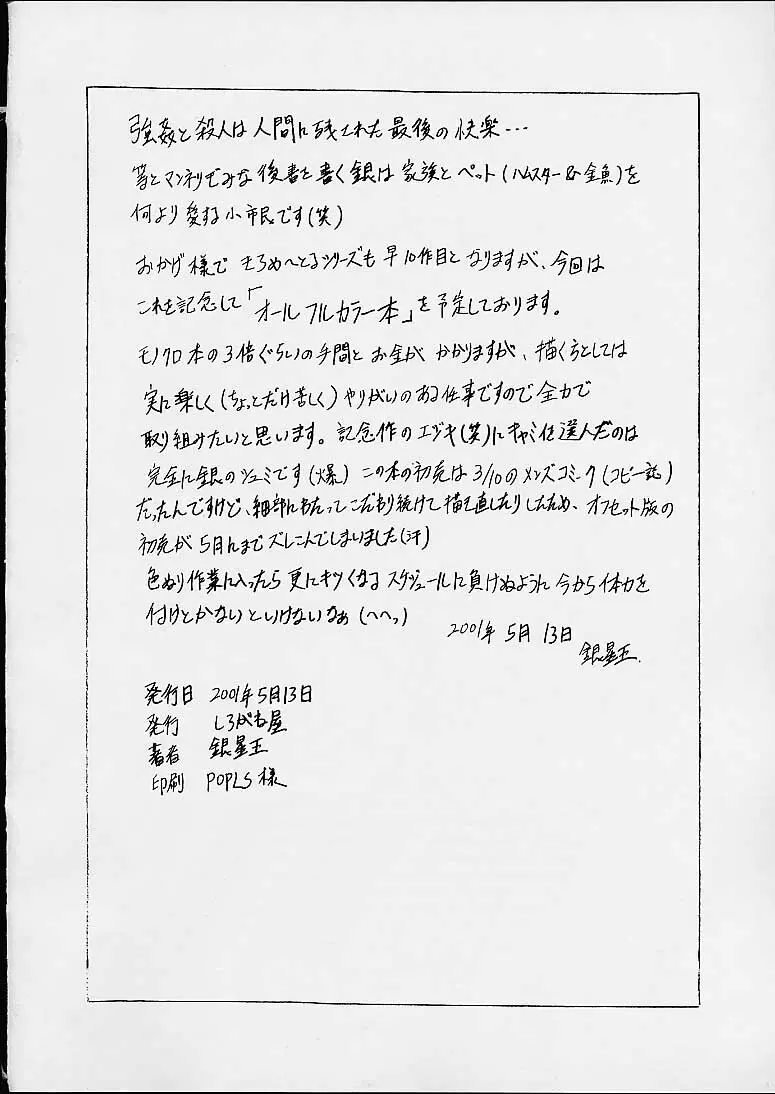 強姦と殺人は人間に残された最後の快楽…
等とマンネリでみな後書を書く銀は家族とペット(ハムスター&金魚)を
何より愛する小市民です(笑)
おかげ様で きろめへとるシリーズも早10作目となりますが、今回は
これを記念して「オールフルカラー本」を予定しております。
モノクロ本の3倍ぐらいの手間とお金がかかりますが、描く方としては
実に楽しく(ちょっとだけ苦しく)やりがいのある仕事ですので全力で
取り組みたいと思います。記念作のエジキ(笑)にキャミイを選んだのは
完全に銀のシュミです(爆) この本の初売は3/10のメンズコミーク(コピー誌)
だったんですけど、細部にわたってこだわり続けて描き直したりしたため、オフセット版の
初売が5月にまでズレこんでしまいました(汗)
色ぬり作業に入ったら更にキツくなるスケジュールに負けぬように今から体力を
付けとかないといけないなぁ(へへっ)
2001年5月13日
銀星王.
発行日 2001年5月13日
発行 しろがね屋
著者 銀星王
印刷 POPLS様